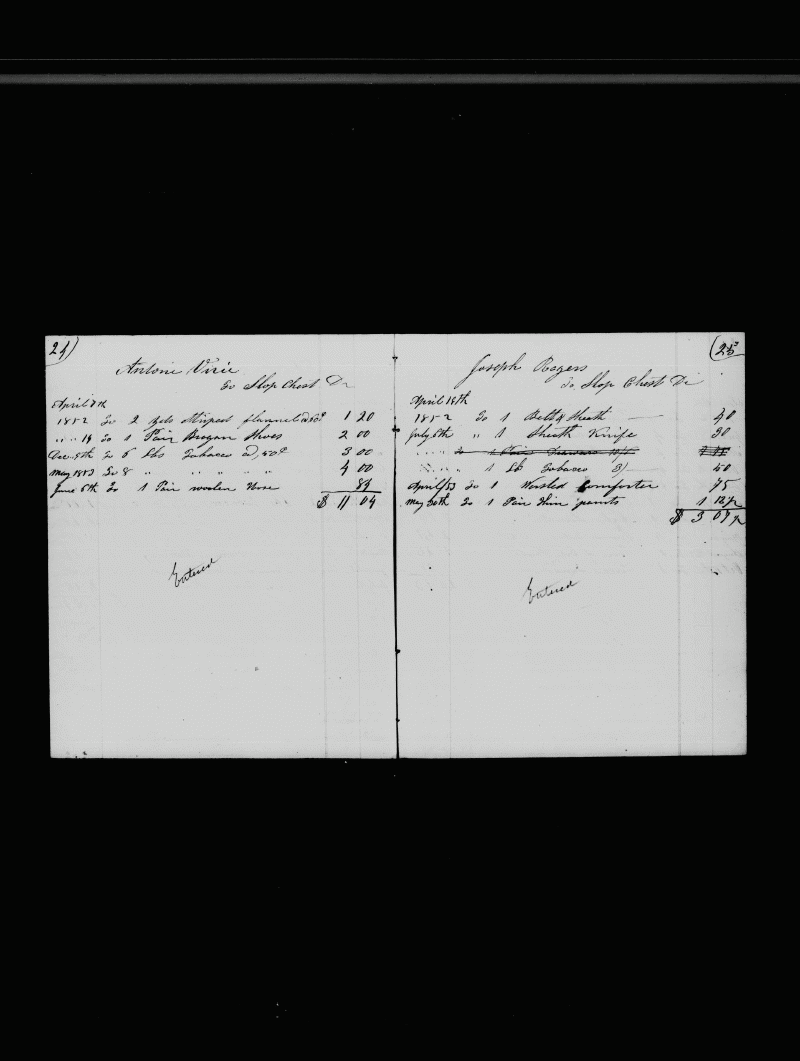 24)
Antone
To Slop Chest Dr
April 8th
1852 To 2 Yds Striped flannel 1 20
" " 19 To 1 Pair Brogan Shoes 2 00
Dec. 9th To 6 Lbs Tobacco @ ,50c 3 00
May 1853 To 8 " " " " " 4 00
June 6th To 1 Pair woolen Hose 84
$ 11 04
Entered
(25
Joseph Rogers
To Slop Chest Dr
April 18th
1852 To 1 Belt & Sheath 40
July 6th " 1 Sheath Knife 30
" " " To 1 Pair
" " " 1 Lb Tobacco 50
April /53 To 1 Worsted Comforter 75
May 30th To 1 Pair Thin pants 1 12 1/2
$ 3 07 1/2
Entered